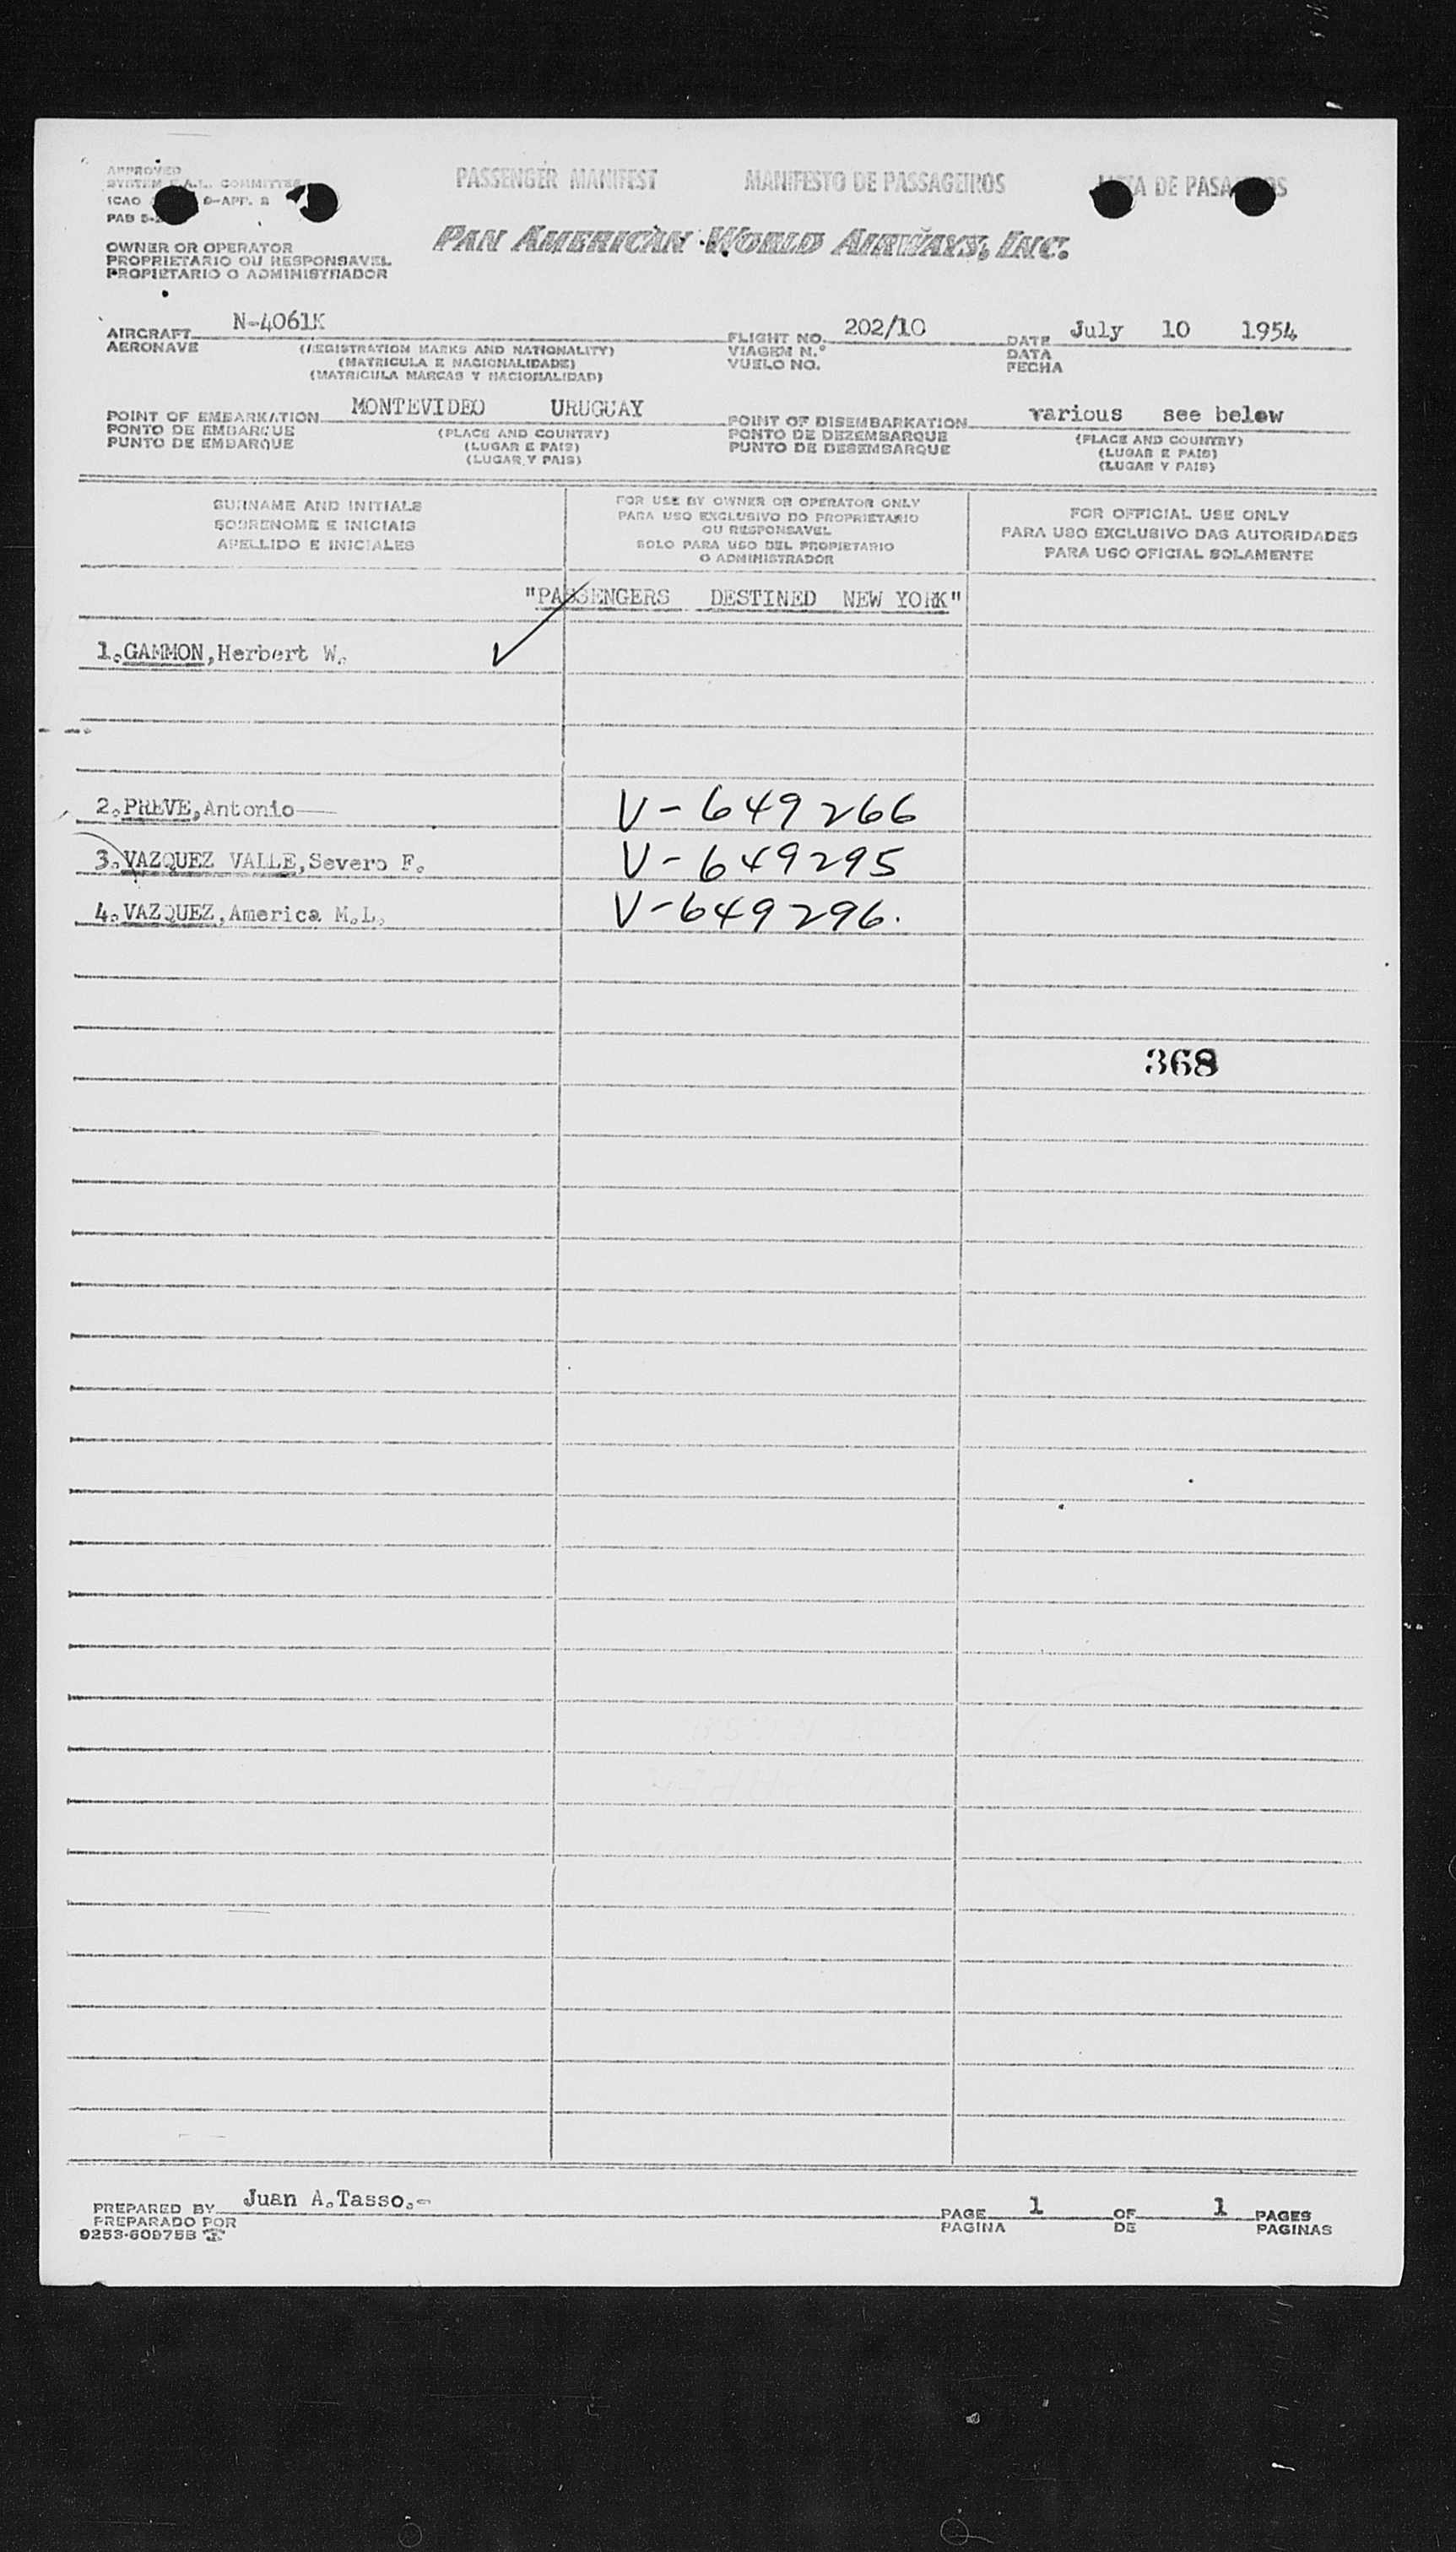 APPROVED
SYSTEM F.A.L. COMMITTEE
ICAO 9-APP. B
PAD 5-
PASSENGER MANIFEST MANIFESTO DE PASSAGEIROS LISTA DE PASAJEROS
PAN AMERICAN WORLD AIRWAYS, INC.
OWNER OR OPERATOR
PROPRIETARIO OU RESPONSAVEL
PROPIETARIO O ADMINISTRADOR
AIRCRAFT N-4061K FLIGHT NO. 202/10 DATE July 10 1954
AERONAVE (REGISTRATION MARKS AND NATIONALITY) VIAGEM N.° DATA
(MATRICULA E NACIONALIDADE) VUELO NO. FECHA
(MATRICULA MARCAS Y NACIONALIDAD)
POINT OF EMBARKATION MONTEVIDEO URUGUAY POINT OF DISEMBARKATION various see below
PONTO DE EMBARQUE (PLACE AND COUNTRY) PONTO DE DEZEMBARQUE (PLACE AND COUNTRY)
PUNTO DE EMBARQUE (LUGAR E PAIS) PUNTO DE DESEMBARQUE (LUGAR E PAIS)
(LUGAR Y PAIS) (LUGAR Y PAIS)
SURNAME AND INITIALS
SOBRENOME E INICIAIS
APELLIDO E INICIALES
FOR USE BY OWNER OR OPERATOR ONLY
PARA USO EXCLUSIVO DO PROPRIETARIO
OU RESPONSAVEL
SOLO PARA USO DEL PROPIETARIO
O ADMINISTRADOR
FOR OFFICIAL USE ONLY
PARA USO EXCLUSIVO DAS AUTORIDADES
PARA USO OFICIAL SOLAMENTE
"PASSENGERS DESTINED NEW YORK"
1.GAMMON,Herbert W.
2.PREVE,Antonio V-649266
3.VAZQUEZ VALLE,Severo F. V-649295
4.VAZQUEZ,America M.L. V-649296.
368
PREPARED BY Juan A.Tasso.- PAGE 1 OF 1 PAGES
PREPARADO POR PAGINA DE PAGINAS
9253-60975B